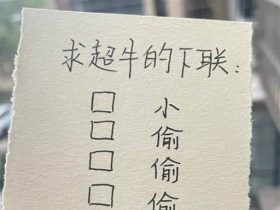 求超牛的下联:
□ 小
□ 偷
□ 偷
□ 偷